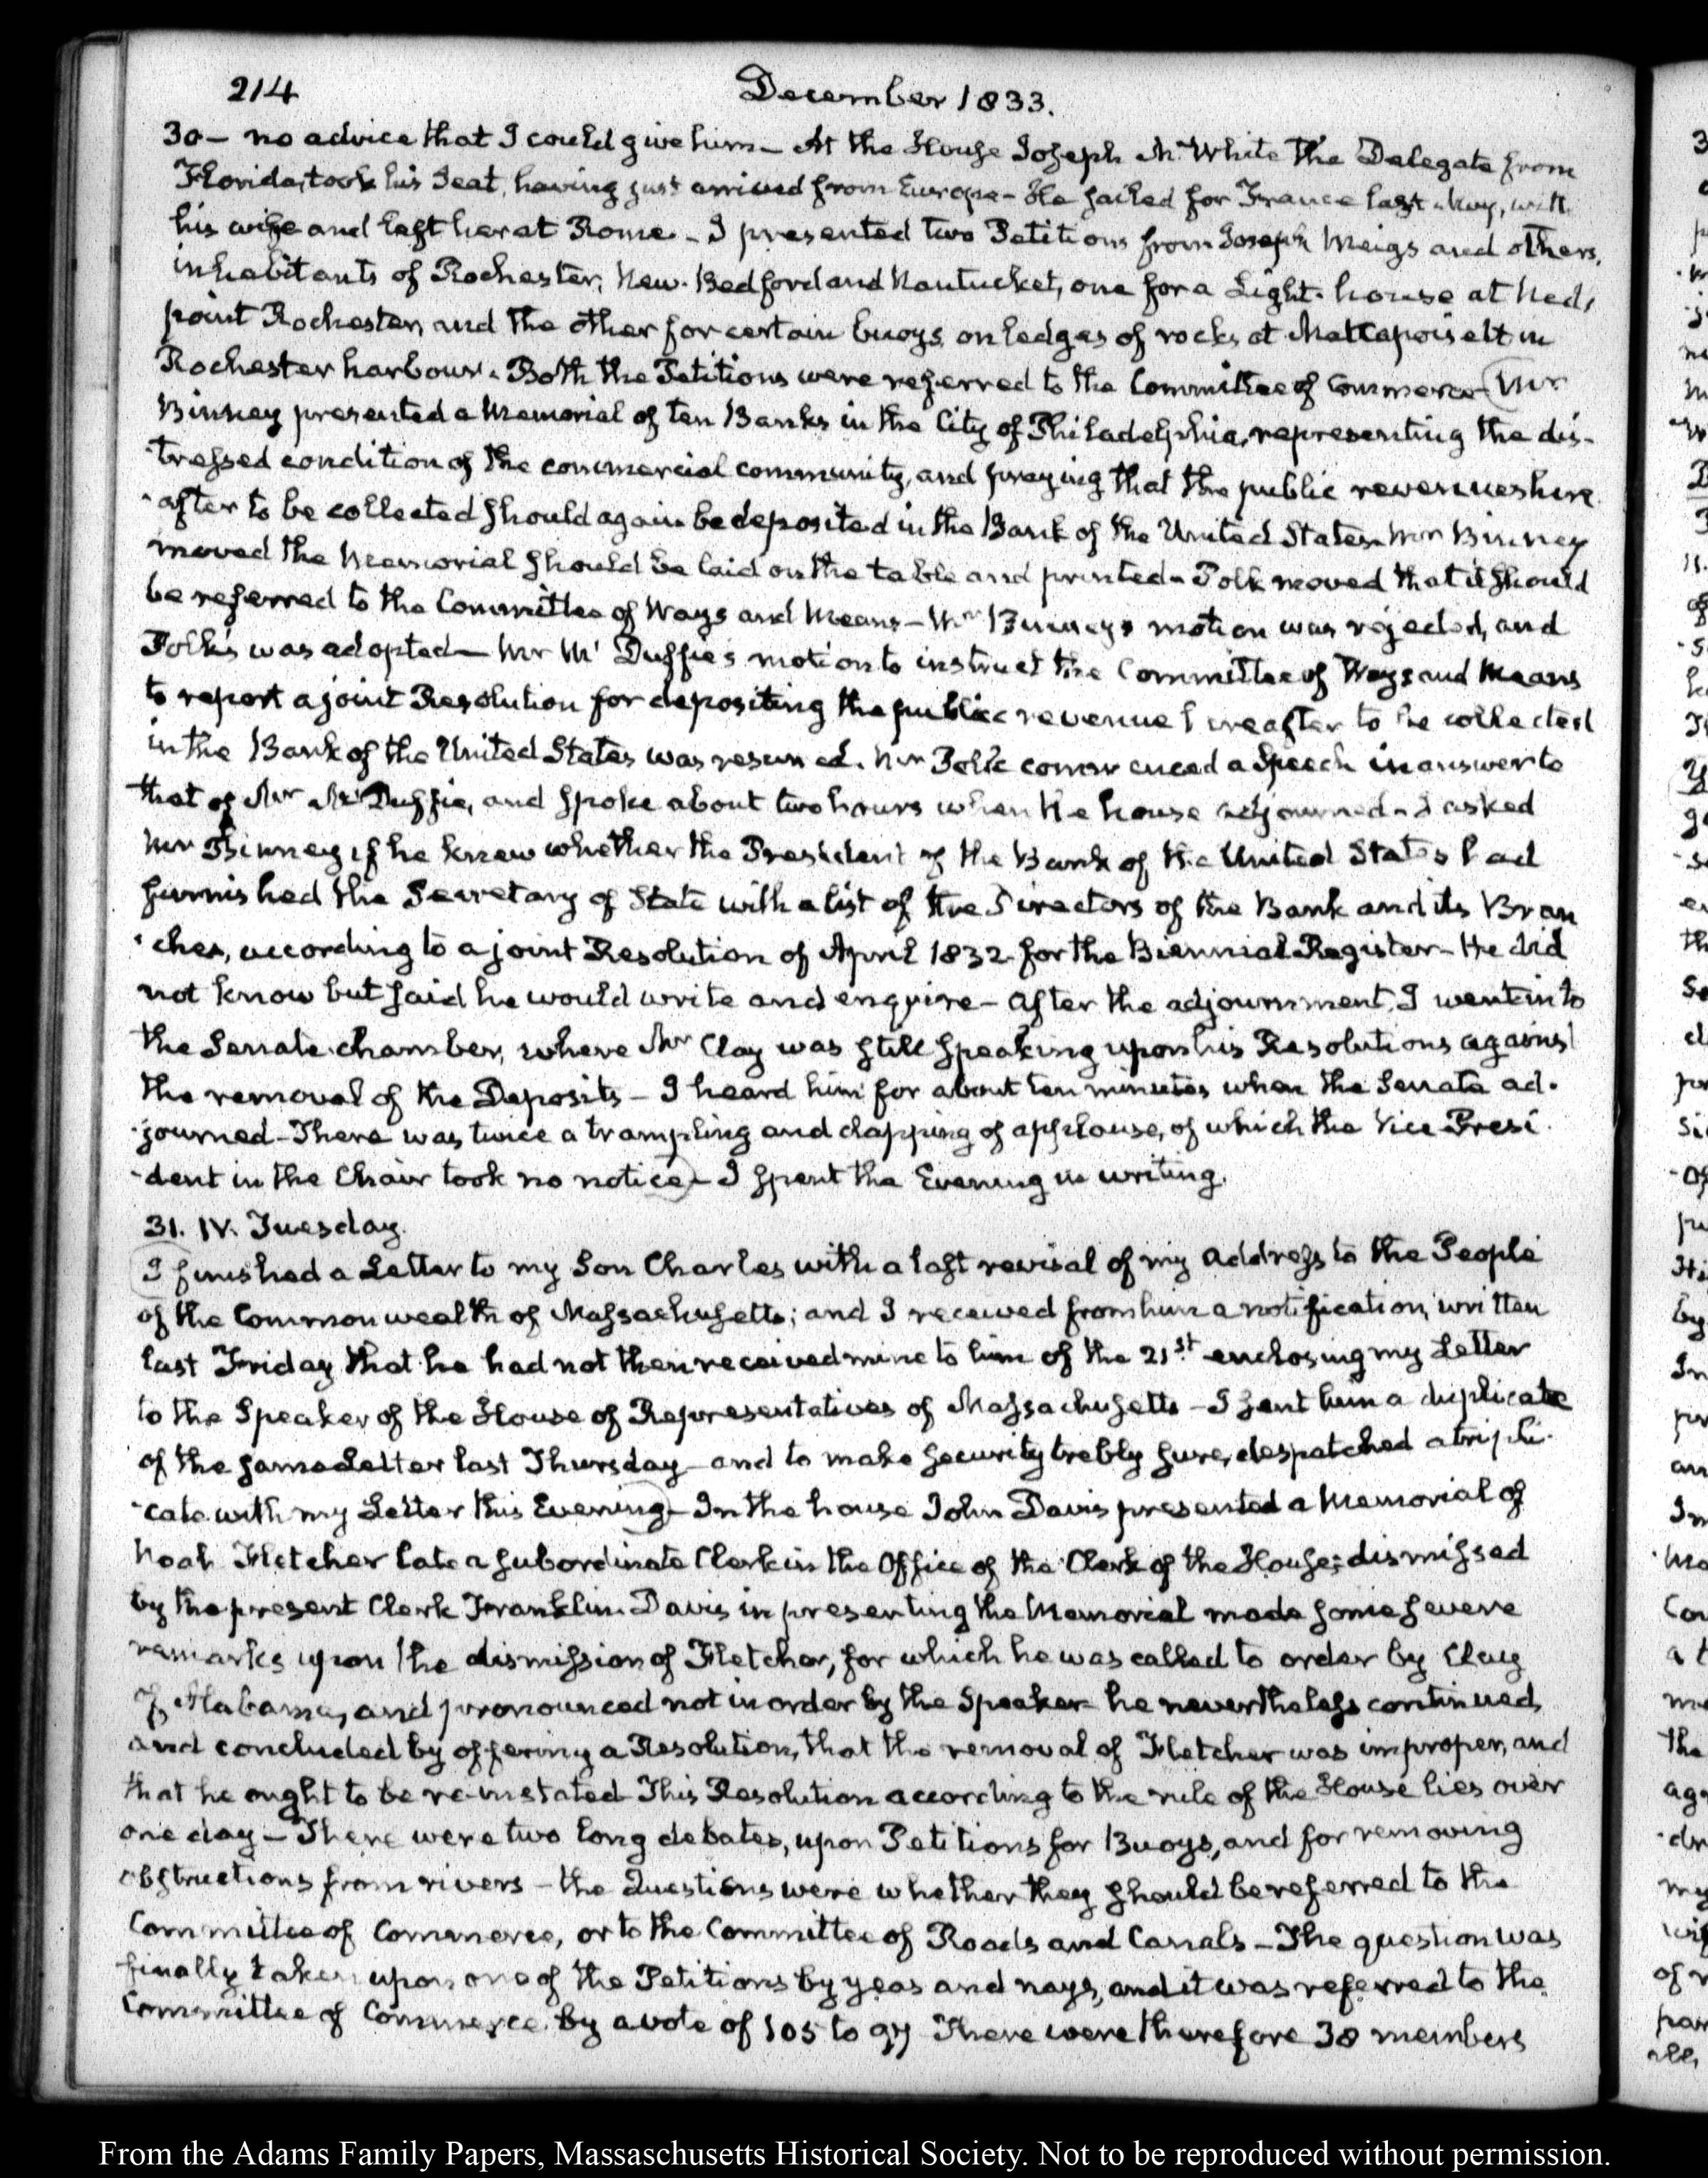 214 December 1833.
30 – no advice that I could give him – At the House Joseph M. White the Delegate from
Florida, took his Seat, having just arrived from Europe – He sailed for France last May, with
his wife and left her at Rome – I presented two Petitions from Joseph Meigs and others,
inhabitants of Rochester, New-Bedford and Nantucket, one for a Light-house at Neds
point Rochester, and the other for certain buoys on ledges of rocks at Mattapoiselt in
Rochester harbour. Both the Petitions were referred to the Committee of Commerce – Mr
Binney presented a Memorial of ten Banks in the City of Philadelphia, representing the dis-
-tressed condition of the commercial community, and praying that the public revenues here
-after to be collected should again be deposited in the Bank of the United States – Mr Binney
moved the Memorial should be laid on the table and printed – Polk moved that it should
be referred to the Committee of Ways and Means – Mr Binney's motion was rejected, and
Polk's was adopted – Mr Mc Duffie's motion to instruct the Committee of Ways and Means
to report a joint Resolution for depositing the public revenue hereafter to be collected
in the Bank of the United States was resumed. Mr Polk commenced a Speech in answer to
that of Mr Mc Duffie, and spoke about two hours when the house adjourned – I asked
Mr Binney if he knew whether the President of the Bank of the United States had
furnished the Secretary of State with a list of the Directors of the Bank and its Bran
-ches, according to a joint Resolution of April 1832 for the Biennial Register – He did
not know but said he would write and enquire – After the adjournment, I went into
the Senate chamber, where Mr Clay was still speaking upon his Resolutions against
the removal of the Deposits – I heard him for about ten minutes when the Senate ad-
-journed – There was twice a trampling and clapping of applause, of which the Vice Presi
-dent in the Chair took no notice – I spent the Evening in writing.
31. IV. Tuesday.
I finished a Letter to my Son Charles with a last revisal of my Address to the People
of the Commonwealth of Massachusetts; and I received from him a notification, written
last Friday that he had not then received mine to him of the 21st enclosing my Letter
to the Speaker of the House of Representatives of Massachusetts – I sent him a duplicate
of the same Letter last Thursday – and to make security trebly sure, despatched a tripli-
-cate with my Letter this Evening – In the house John Davis presented a Memorial of
Noah Fletcher late a subordinate Clerk in the Office of the Clerk of the House; dismissed
by the present Clerk Franklin. Davis in presenting the Memorial made some severe
remarks upon the dismission of Fletcher, for which he was called to order by Clay
of Alabama, and pronounced not in order by the Speaker – he nevertheless continued,
and concluded by offering a Resolution, that the removal of Fletcher was improper, and
that he ought to be re-instated – This Resolution according to the rule of the House lies over
one day – There were two long debates, upon Petitions for Buoys, and for removing
obstructions from rivers – the Questions were whether they should be referred to the
Committee of Commerce, or to the Committee of Roads and Canals – The question was
finally taken upon one of the Petitions by yeas and nays, and it was referred to the
Committee of Commerce by a vote of 105 to 97 There were therefore 38 members
From the Adams Family Papers, Massaschusetts Historical Society. Not to be reproduced without permission.